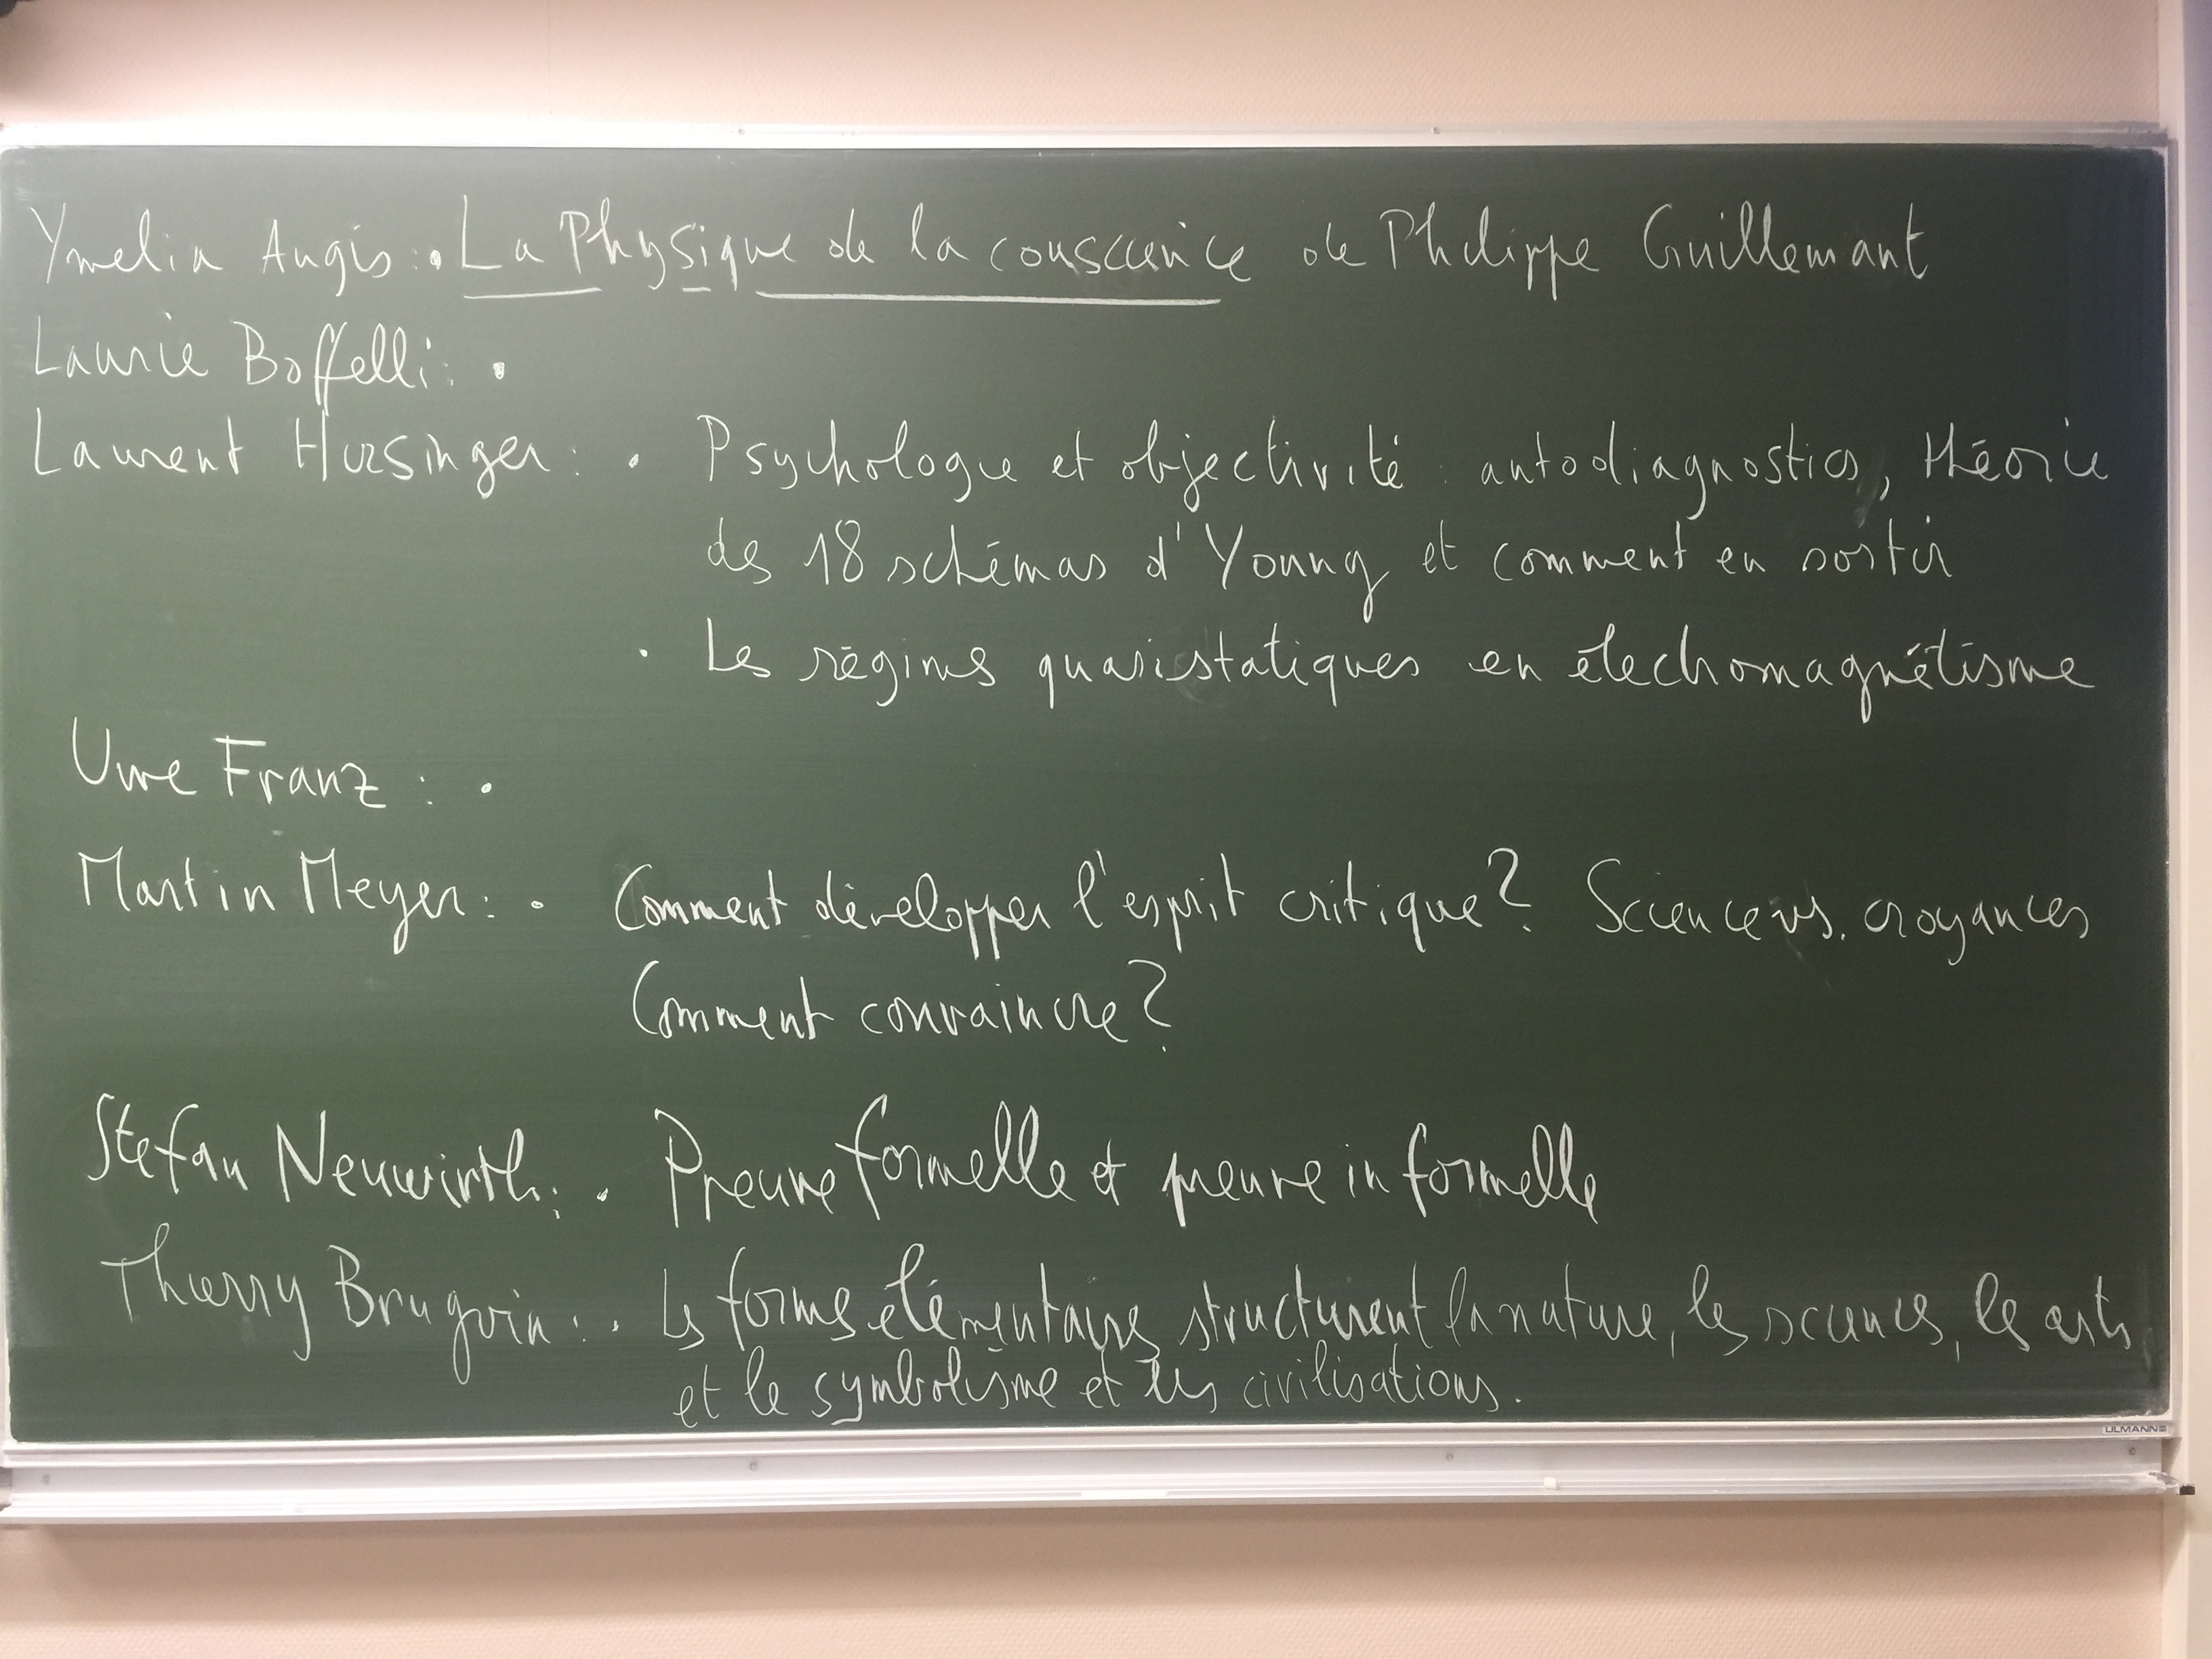 Ymelin Augis : • La Physique de la conscience de Philippe Guillemant
Laurie Boffelli : •
Laurent Hursinger : • Psychologie et objectivité : autodiagnostics, théorie
des 18 schémas d'Young et comment en sortir
• Les régimes quasistatiques en électromagnétisme
Uwe Franz : •
Martin Meyer : • Comment développer l'esprit critique ? Science vs. croyances
Comment convaincre ?
Stefan Neuwirth : • Preuve formelle et preuve informelle
Thierry Brugvin : • Les formes élémentaires structurent la nature, les sciences, les arts
et le symbolisme et les civilisations.
ULMANN